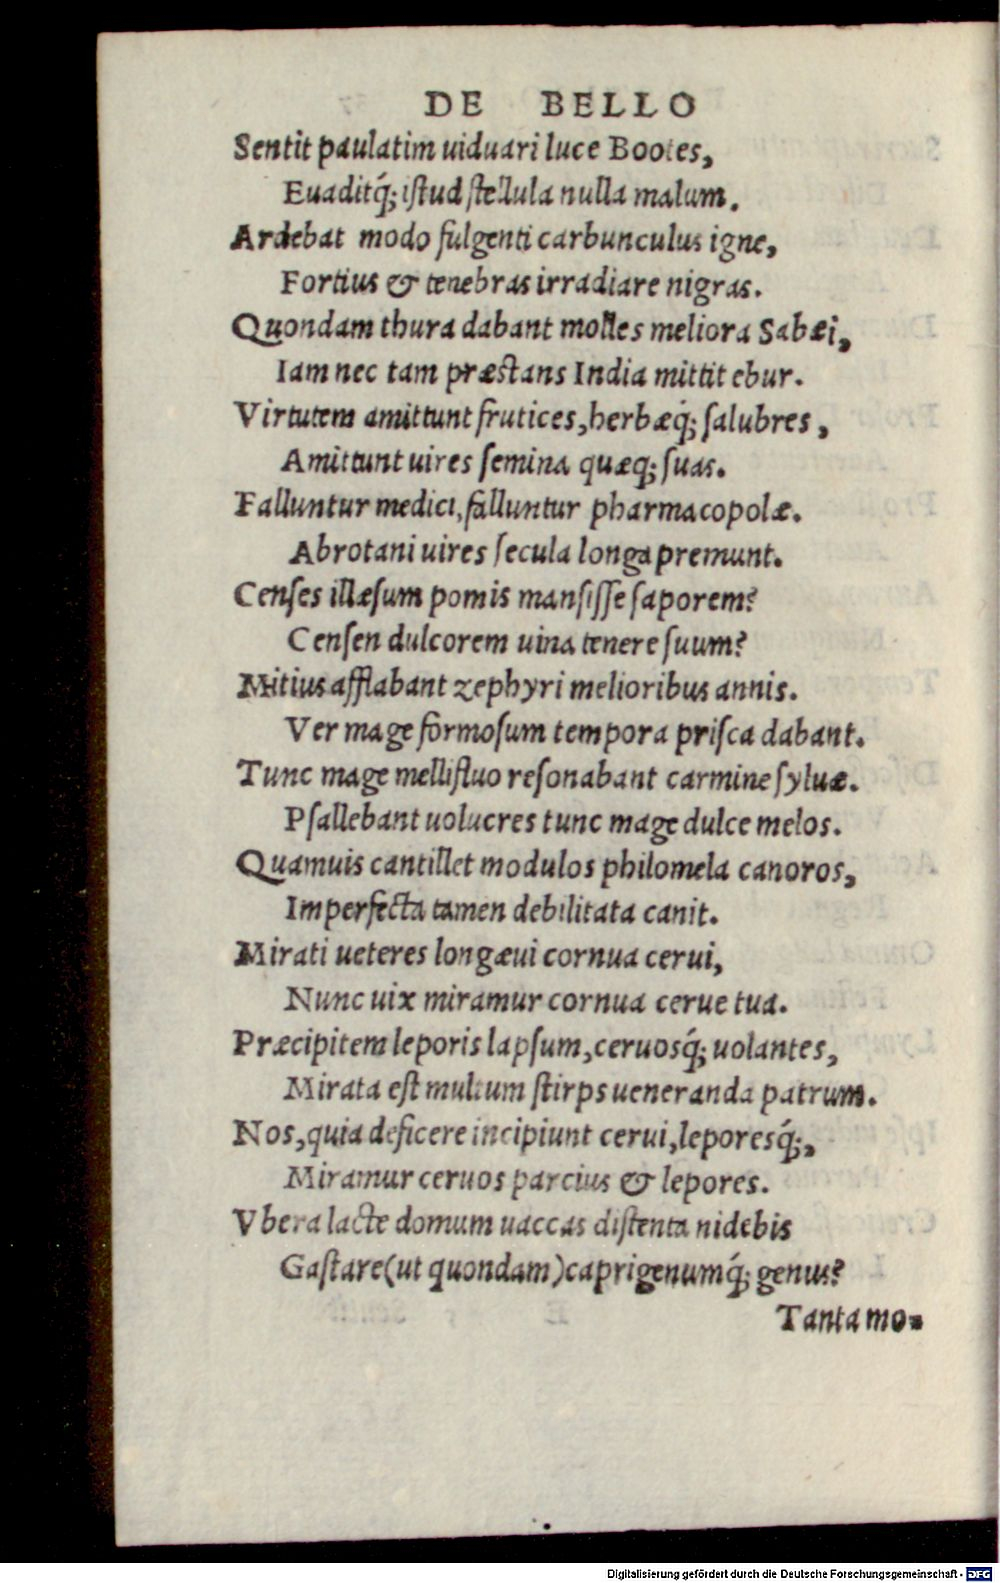 DE BELLO
Sentit paulatim uiduari luce Bootes,
Euaditq́; istud stellula nulla malum.
Ardebat modo fulgenti carbunculus igne,
Fortius & tenebras irradiare nigras.
Quondam thura dabant molles meliora Sabæi,
Iam nec tam præstans India mittit ebur.
Virtutem amittunt frutices, herbæq́; salubres,
Amittunt uires semina quæq; suas.
Falluntur medici, falluntur pharmacopolæ.
Abrotani uires secula longa premunt.
Censes illæsum pomis mansisse saporem?
Censen dulcorem uina tenere suum?
Mitius afflabant zephyri melioribus annis.
Ver mage formosum tempora prisca dabant.
Tunc mage mellifluo resonabant carmine syluæ.
Psallebant uolucres tunc mage dulce melos.
Quamuis cantillet modulos philomela canoros,
Imperfecta tamen debilitata canit.
Mirati ueteres longæui cornua cerui,
Nunc uix miramur cornua cerue tua.
Præcipitem leporis lapsum, ceruosq́; uolantes,
Mirata est multum stirps ueneranda patrum.
Nos, quia deficere incipiunt cerui, leporesq́;,
Miramur ceruos parcius & lepores.
Vbera lacte domum uaccas distenta nidebis
Gastare (ut quondam) caprigenumq́; genus?
Tanta mo-
Digitalisierung gefördert durch die Deutsche Forschungsgemeinschaft - DFG